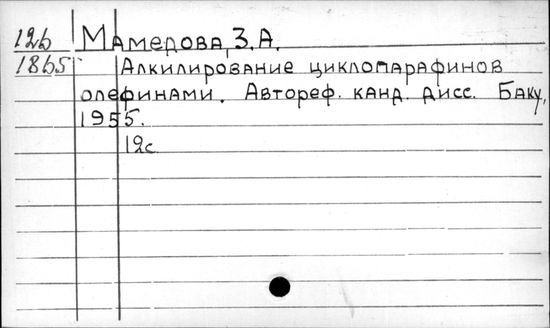 12б Мамедова, З.А.
1865 Алкилирование циклопарафинов
олефинами. Автореф. канд. дисс. Баку,
1955.
12с